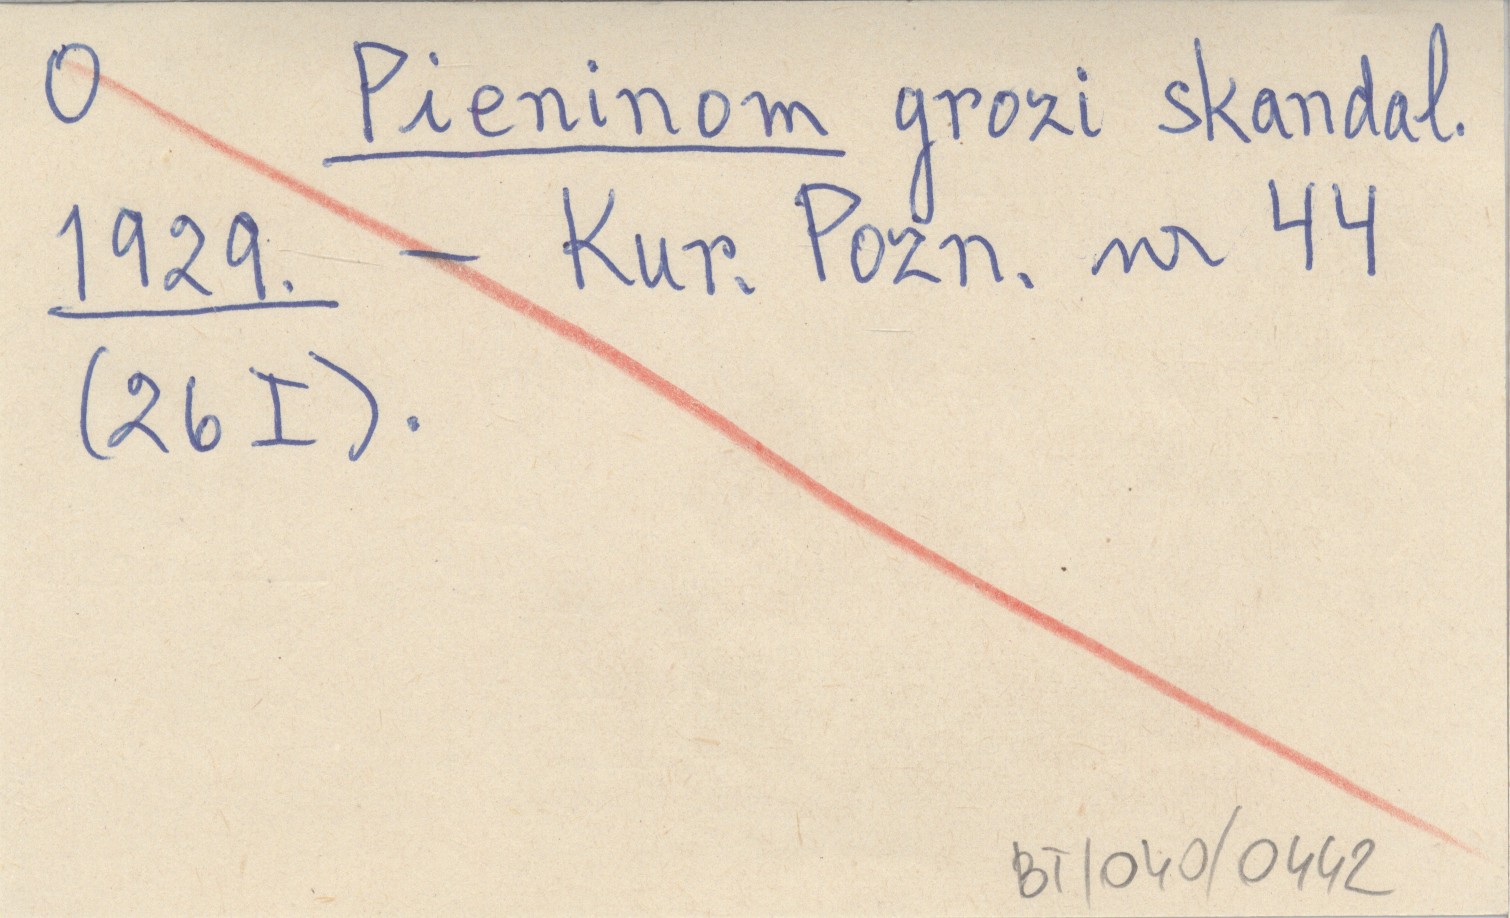 O Pieninom grozi skandal.
1929. — Kur. Pozn. nr 44
(26 I).
BT/040/0442